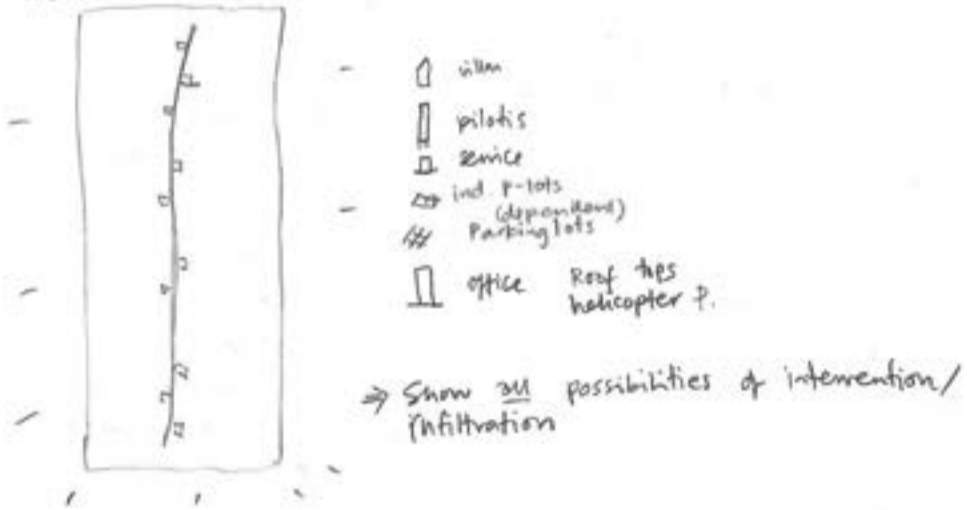 villa
pilotis
service
ind. p-lots
(dependent)
Parking lots
office Roof tops
helicopter P.
⇒ Show all possibilities of intervention/
infiltration